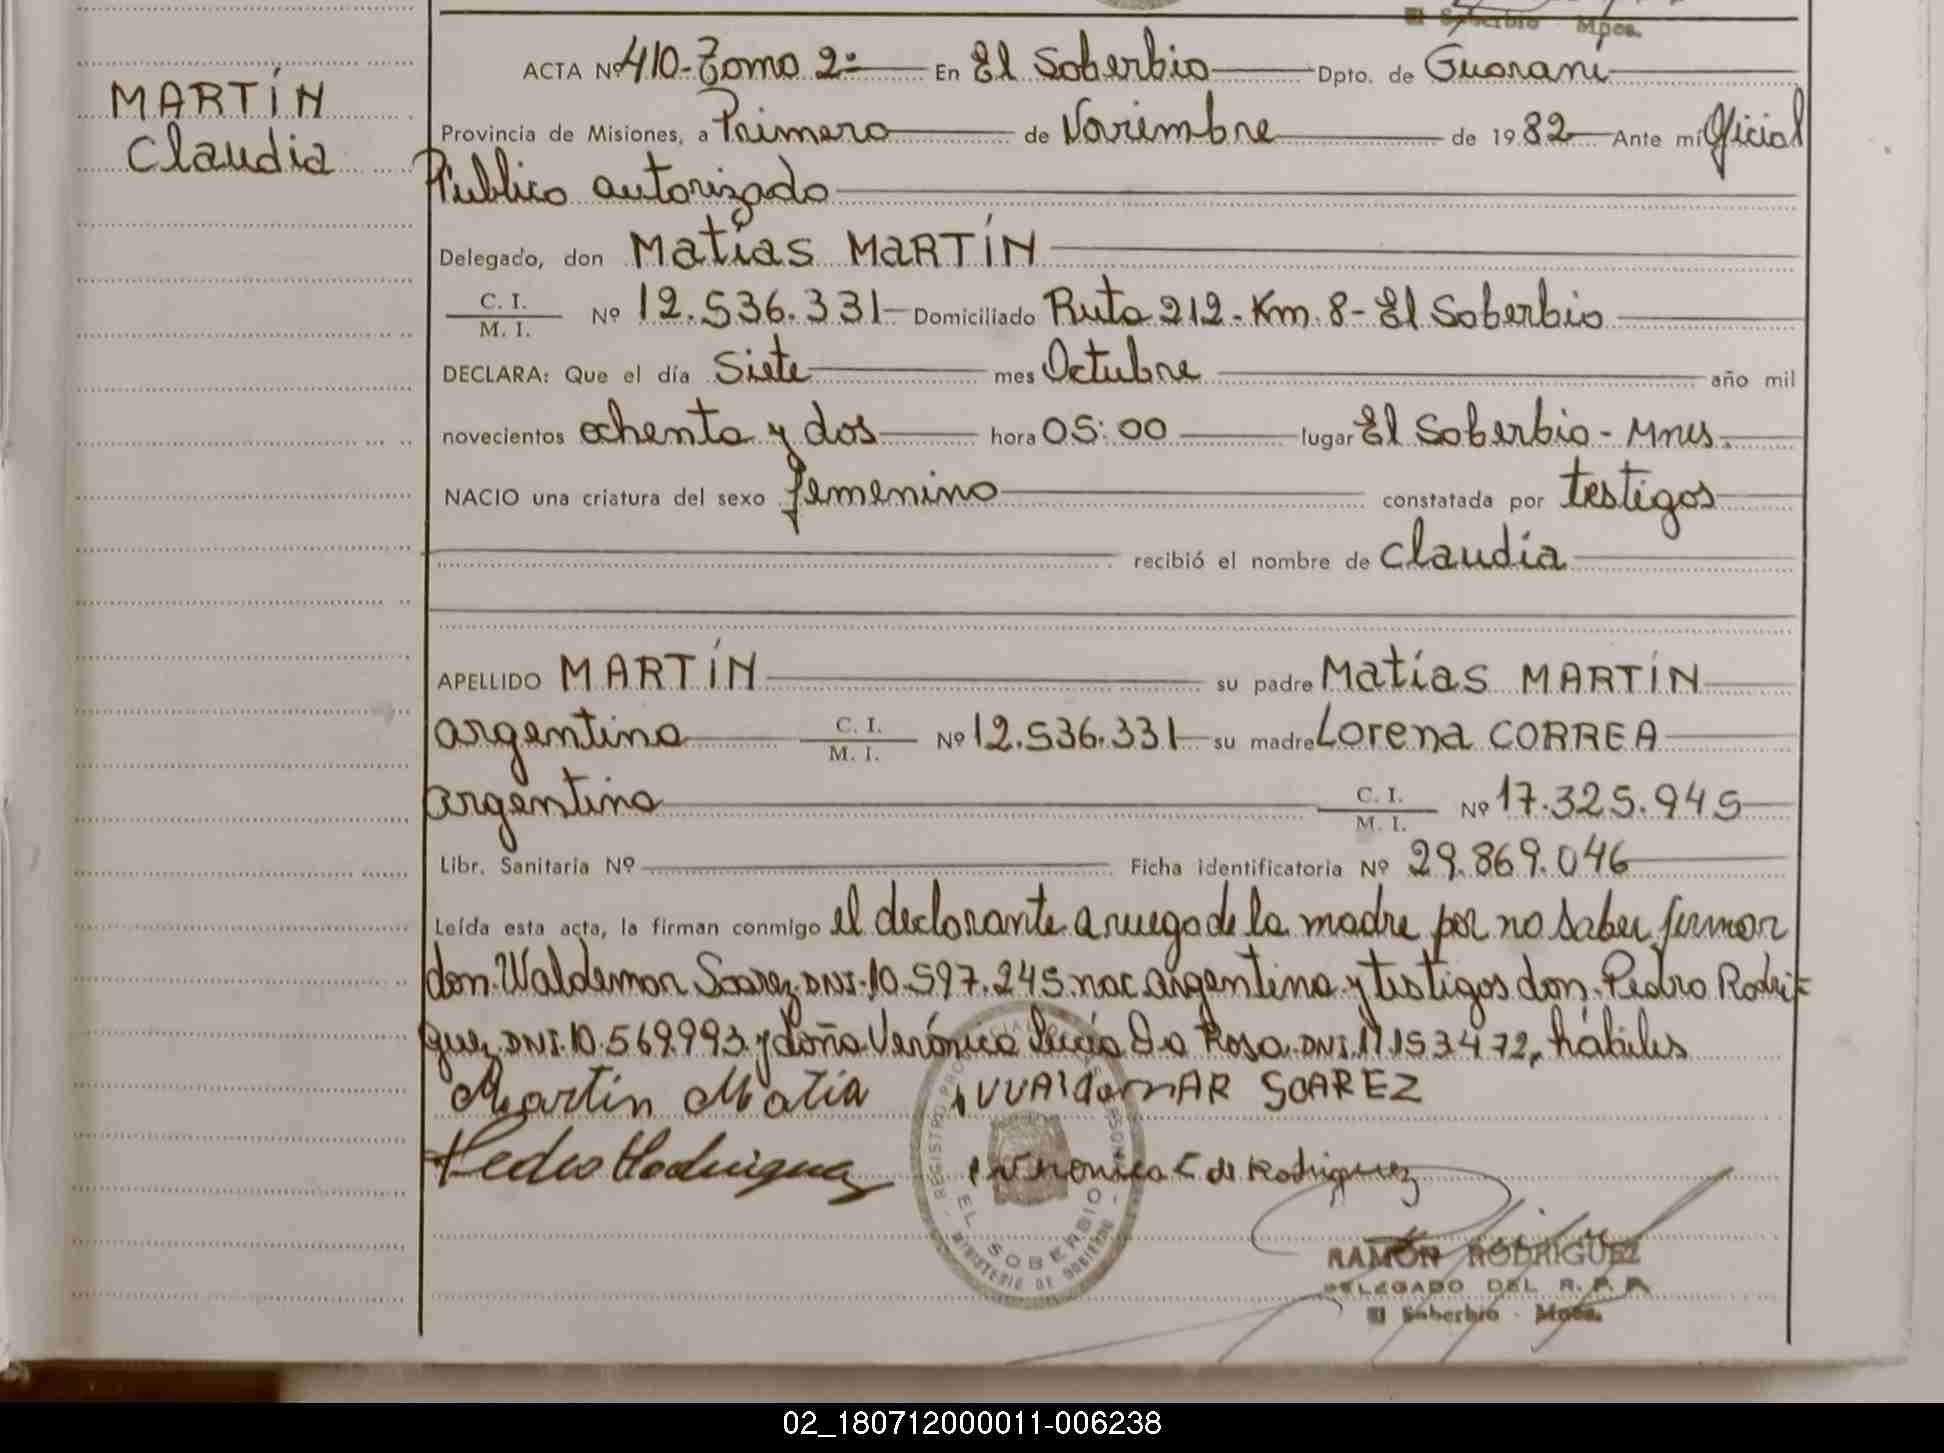 El Soberbio Mnes.
MARTÍN
Claudia
ACTA Nº 410-Tomo 2º En El Soberbio Dpto. de Guaraní
Provincia de Misiones, a Primero de Noviembre de 1982 Ante mí Oficial
Publico autorizado
Delegado, don Matías MARTÍN
C. I.
M. I. Nº 12.536.331 Domiciliado Ruta 212-Km. 8-El Soberbio
DECLARA: Que el día Siete mes Octubre año mil
novecientos ochenta y dos hora 05:00 lugar El Soberbio-Mnes.
NACIO una criatura del sexo femenino constatada por testigos
recibió el nombre de Claudia
APELLIDO MARTÍN su padre Matías MARTÍN
argentino C. I.
M. I. Nº 12.536.331 su madre Lorena CORREA
argentina C. I.
M. I. Nº 17.325.945
Libr. Sanitaria Nº Ficha identificatoria Nº 29.869.046
Leída esta acta, la firman conmigo el declarante a ruego de la madre por no saber firmar
don Waldemar Soarez DNI.10.597.245.nac argentina y testigos don. Pedro Rodri-
guez DNI.10.569.993 y doña Verónica Lucía Da Rosa DNI.11.153.472, hábiles
Martin Matia WAldemAR SOAREZ
Pedro Rodriguez Veronica L de Rodriguez
REGISTRO PROVINCIAL DE LAS PERSONAS
EL SOBERBIO
MINISTERIO DE GOBIERNO
RAMÓN RODRIGUEZ
DELEGADO DEL R. P. P.
El Soberbio - Mnes.
02_180712000011-006238